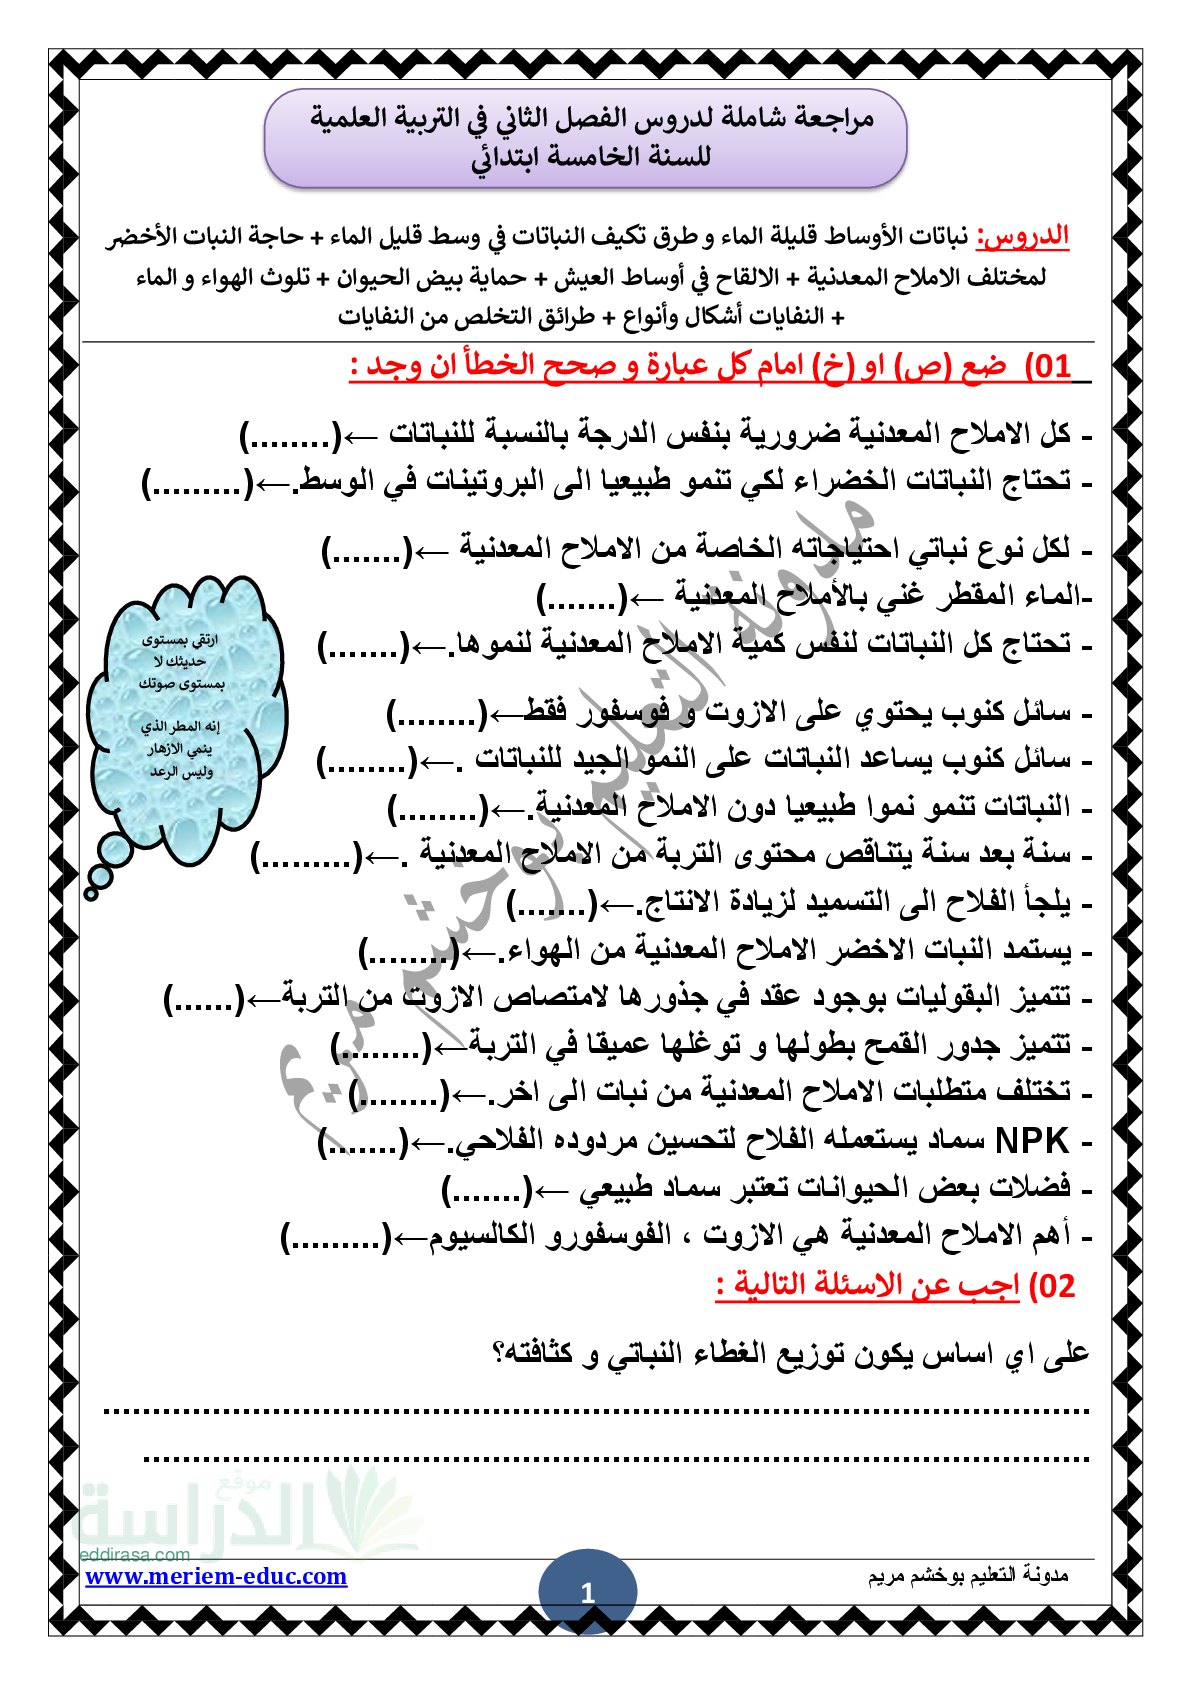 مراجعة شاملة لدروس الفصل الثاني في التربية العلمية
للسنة الخامسة ابتدائي
الدروس: نباتات الأوساط قليلة الماء و طرق تكيف النباتات في وسط قليل الماء + حاجة النبات الأخضر
لمختلف الاملاح المعدنية + الالقاح في أوساط العيش + حماية بيض الحيوان + تلوث الهواء و الماء
+ النفايات أشكال وأنواع + طرائق التخلص من النفايات
01) ضع (ص) او (خ) امام كل عبارة و صحح الخطأ ان وجد :
- كل الاملاح المعدنية ضرورية بنفس الدرجة بالنسبة للنباتات ←(........)
- تحتاج النباتات الخضراء لكي تنمو طبيعيا الى البروتينات في الوسط.←(.........)
- لكل نوع نباتي احتياجاته الخاصة من الاملاح المعدنية ←(.......)
-الماء المقطر غني بالأملاح المعدنية ←(.......)
- تحتاج كل النباتات لنفس كمية الاملاح المعدنية لنموها.←(.......)
- سائل كنوب يحتوي على الازوت و فوسفور فقط←(........)
- سائل كنوب يساعد النباتات على النمو الجيد للنباتات .←(........)
- النباتات تنمو نموا طبيعيا دون الاملاح المعدنية.←(........)
- سنة بعد سنة يتناقص محتوى التربة من الاملاح المعدنية .←(.........)
- يلجأ الفلاح الى التسميد لزيادة الانتاج.←(.......)
- يستمد النبات الاخضر الاملاح المعدنية من الهواء.←(........)
- تتميز البقوليات بوجود عقد في جذورها لامتصاص الازوت من التربة←(......)
- تتميز جدور القمح بطولها و توغلها عميقا في التربة←(........)
- تختلف متطلبات الاملاح المعدنية من نبات الى اخر.←(........)
- NPK سماد يستعمله الفلاح لتحسين مردوده الفلاحي.←(.......)
- فضلات بعض الحيوانات تعتبر سماد طبيعي ←(.......)
- أهم الاملاح المعدنية هي الازوت ، الفوسفورو الكالسيوم←(.........)
ارتقي بمستوى
حديثك لا
بمستوى صوتك
إنه المطر الذي
ينمي الازهار
وليس الرعد
مدونة التعليم بوخشم مريم
02) اجب عن الاسئلة التالية :
على اي اساس يكون توزيع الغطاء النباتي و كثافته؟
................................................................................................
............................................................................................
موقع
الدراسة
eddirasa.com
مدونة التعليم بوخشم مريم
1
www.meriem-educ.com